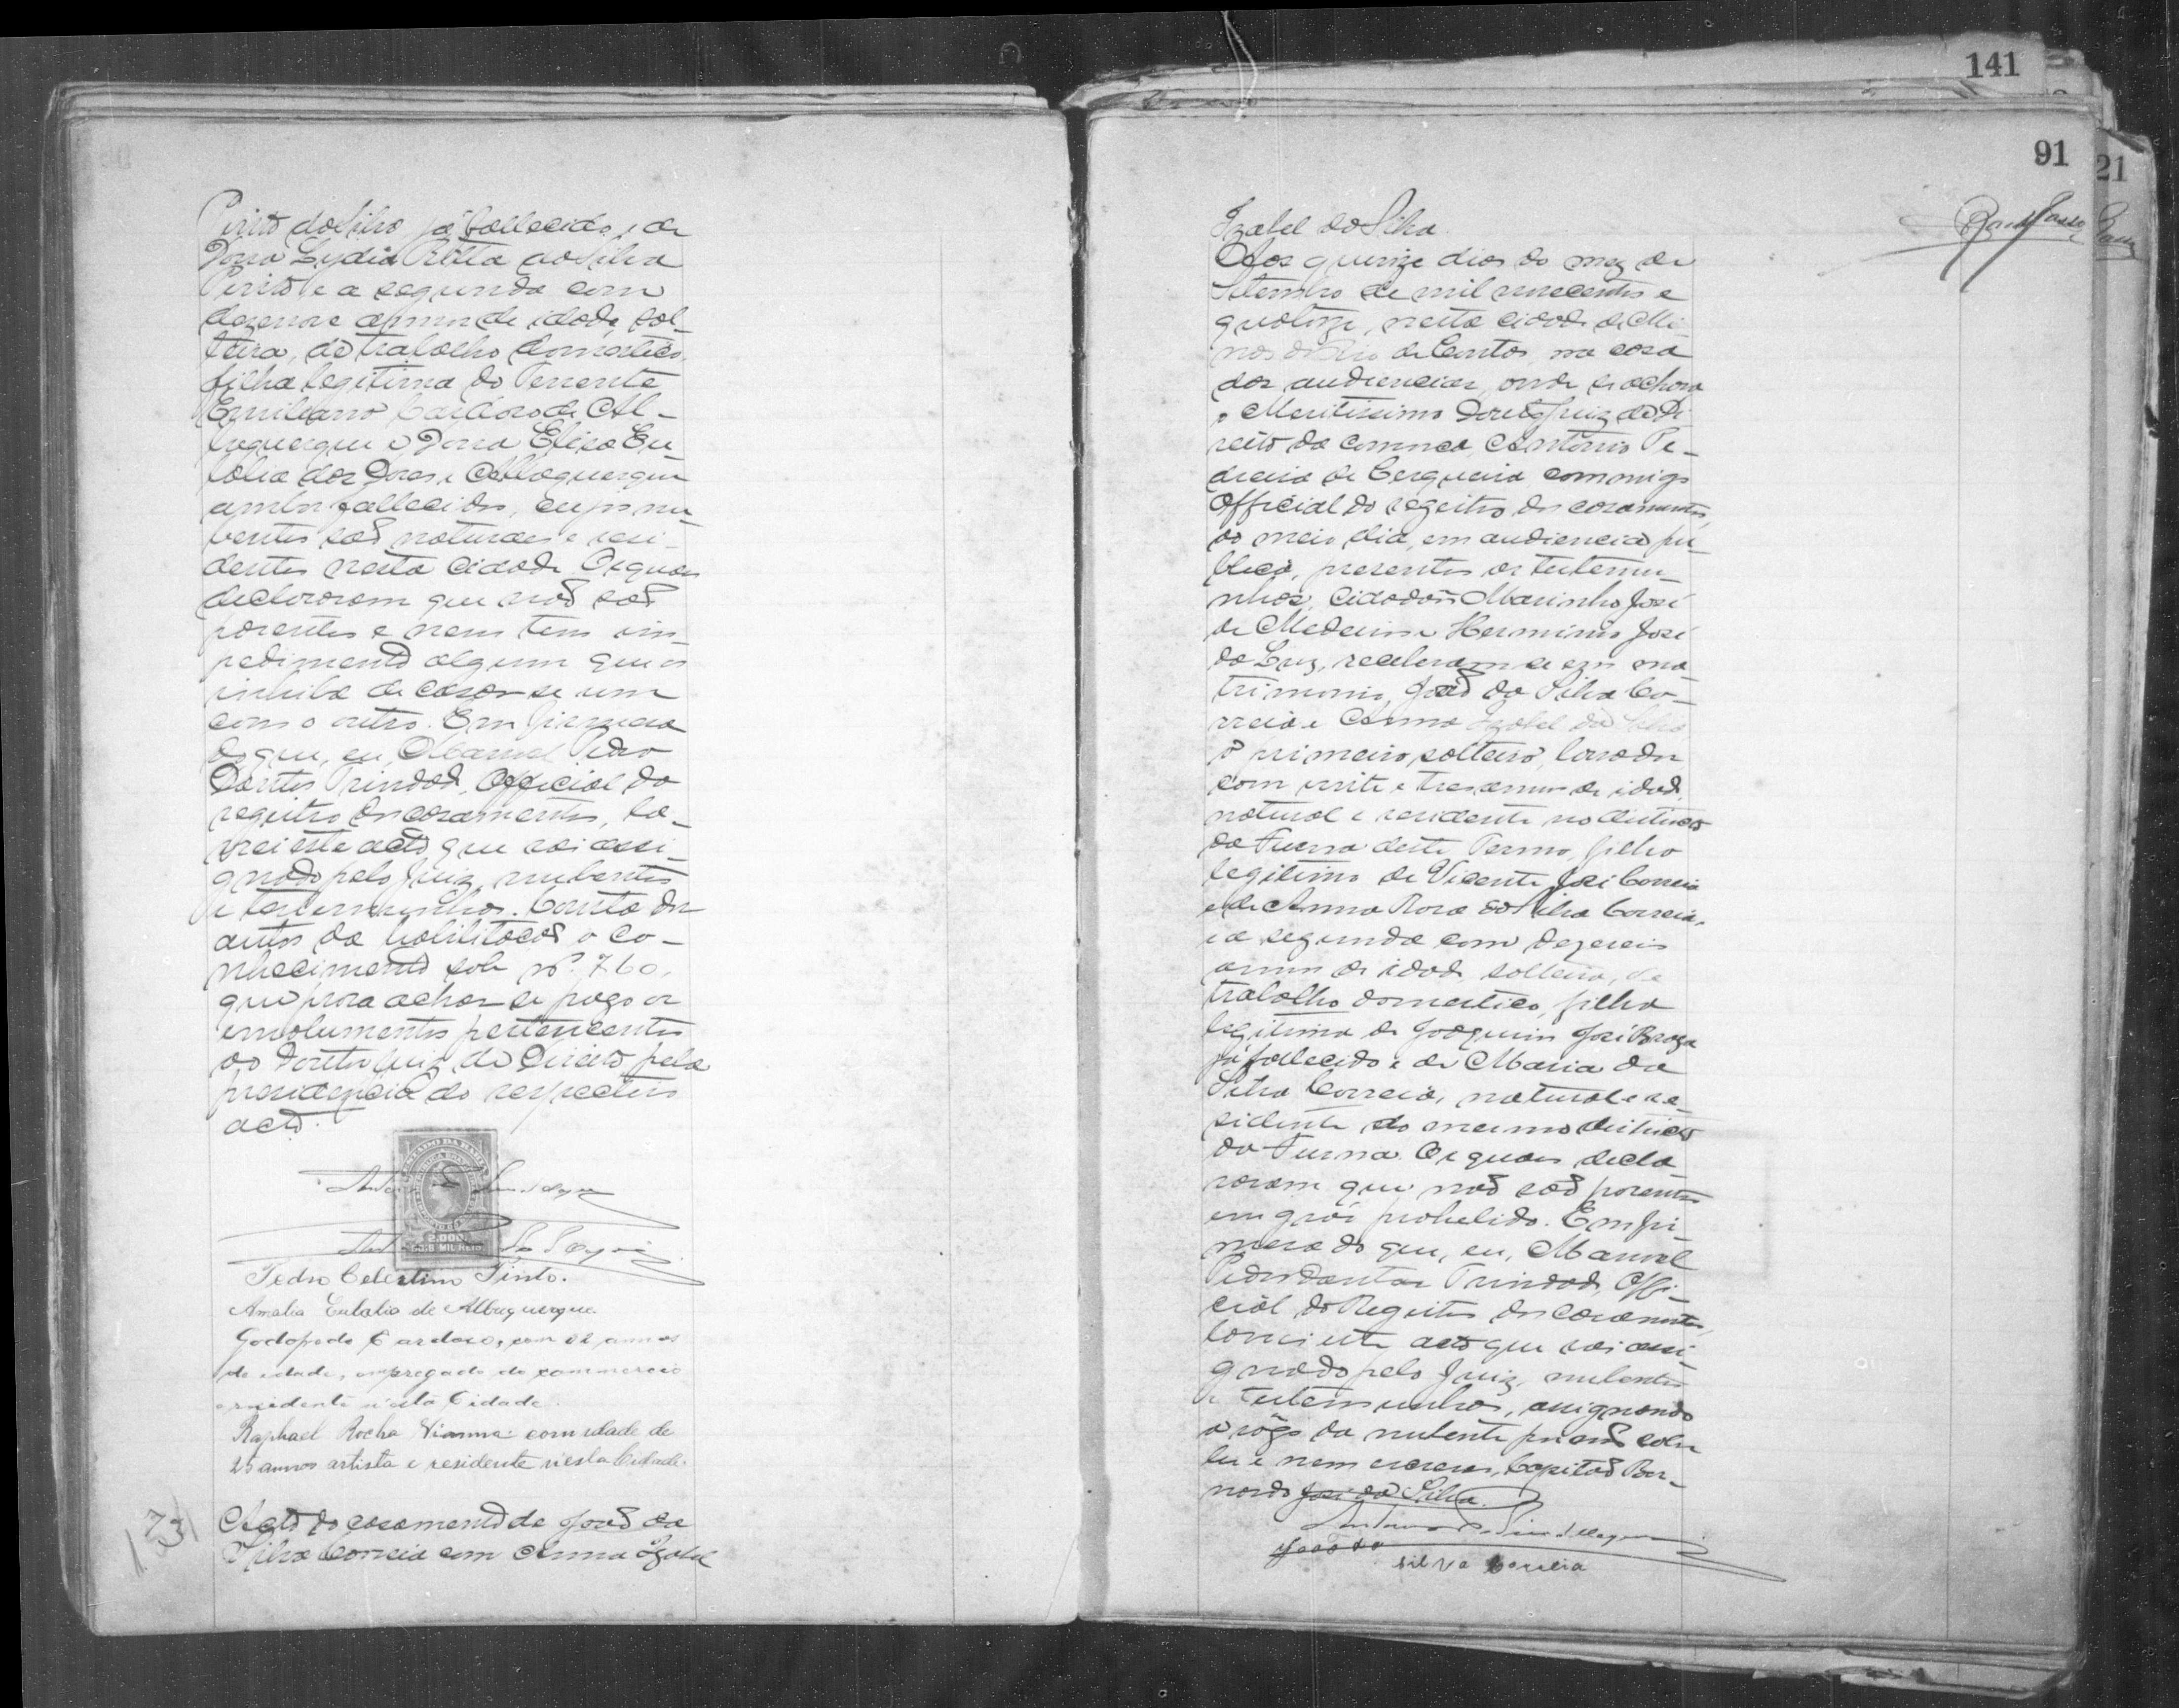 Pinto da Silva, já fallecido, e de
Dona Lydia Ritta da Silva
Pinto e a segunda com
dezenove annos de idade, sol-
teira, de trabalho domestico,
filha legitima do Tenente
Emiliano Cardoso de Al-
buquerque e Dona Elisa Eu-
lalia das Dores e Albuquerque
ambos fallecidos, cujos nu-
bentes são naturaes e resi-
dentes nesta Cidade. Os quaes
declararam que não são
parentes e nem tem im-
pedimento algum que os
inhiba de casar-se um
com o outro. Em firmeza
do que, eu, Manoel Pedro
Dantas Trindade, Official do
registro dos casamentos, la-
vrei este acto que vai assi-
gnado pelo Juiz, nubentes
e testemunhas. Consta dos
autos da habilitação o co-
nhecimento sob nº 760,
que prova achar-se pago os
emolumentos pertencentes
ao Doutor Juiz de Direito pela
presidencia do respectivo
acto.
ESTADO DA BAHIA
2.000
DOIS MIL REIS
Pedro Celestino Pinto.
Amalia Eulalia de Albuquerque.
Godofredo Cardoso, com annos
de idade, empregado do commercio
e residente n'esta Cidade.
Raphael Rocha Vianna com idade de
25 annos artista e residente n'esta Cidade.
173
Acto do casamento de João da
Silva Correia com Anna Izabel
141
91
21
Izabel da Silva.
Aos quinze dias do mez de
Setembro de mil novecentos e
quatorze, nesta cidade de Mi-
nas do Rio de Contas, na casa
das audiencias, onde se achava
o Meritissimo Doutor Juiz de Di-
reito da Comarca, Antonio Pe-
dreira de Cerqueira commigo
Official do registro dos casamentos,
ao meio dia, em audiencia pu-
blica, presentes as testemu-
nhas, Cidadãos Marinho José
de Medeiros e Herminio José
da Luz, receberam-se em ma-
trimonio, João da Silva Co-
rreia e Anna Izabel da Silva
o primeiro, solteiro, lavrador
com vinte e tres annos de idade,
natural e residente no districto
da Furna deste Termo, filho
legitimo de Vicente José Correia
e de Anna Rosa da Silva Correia,
e a segunda com dezeseis
annos de idade solteira, de
trabalho domestico, filha
legitima de Joaquim José Braga
já fallecido e de Maria da
Silva Correia, natural e re-
sidente do mesmo districto
da Furna. Os quaes decla-
raram que não são parentes
em gráo prohibido. Em fir-
meza do que, eu, Manoel
Pedro Dantas Trindade, Offi-
cial do Registro dos Casamentos,
lavrei este acto que vai assi-
gnado pelo Juiz, nubentes
e testemunhas, assignando
a rogo da nubente por não saber
ler e nem escrever, Capitão Ber-
nardo José da Silva.
João da
Silva Correia